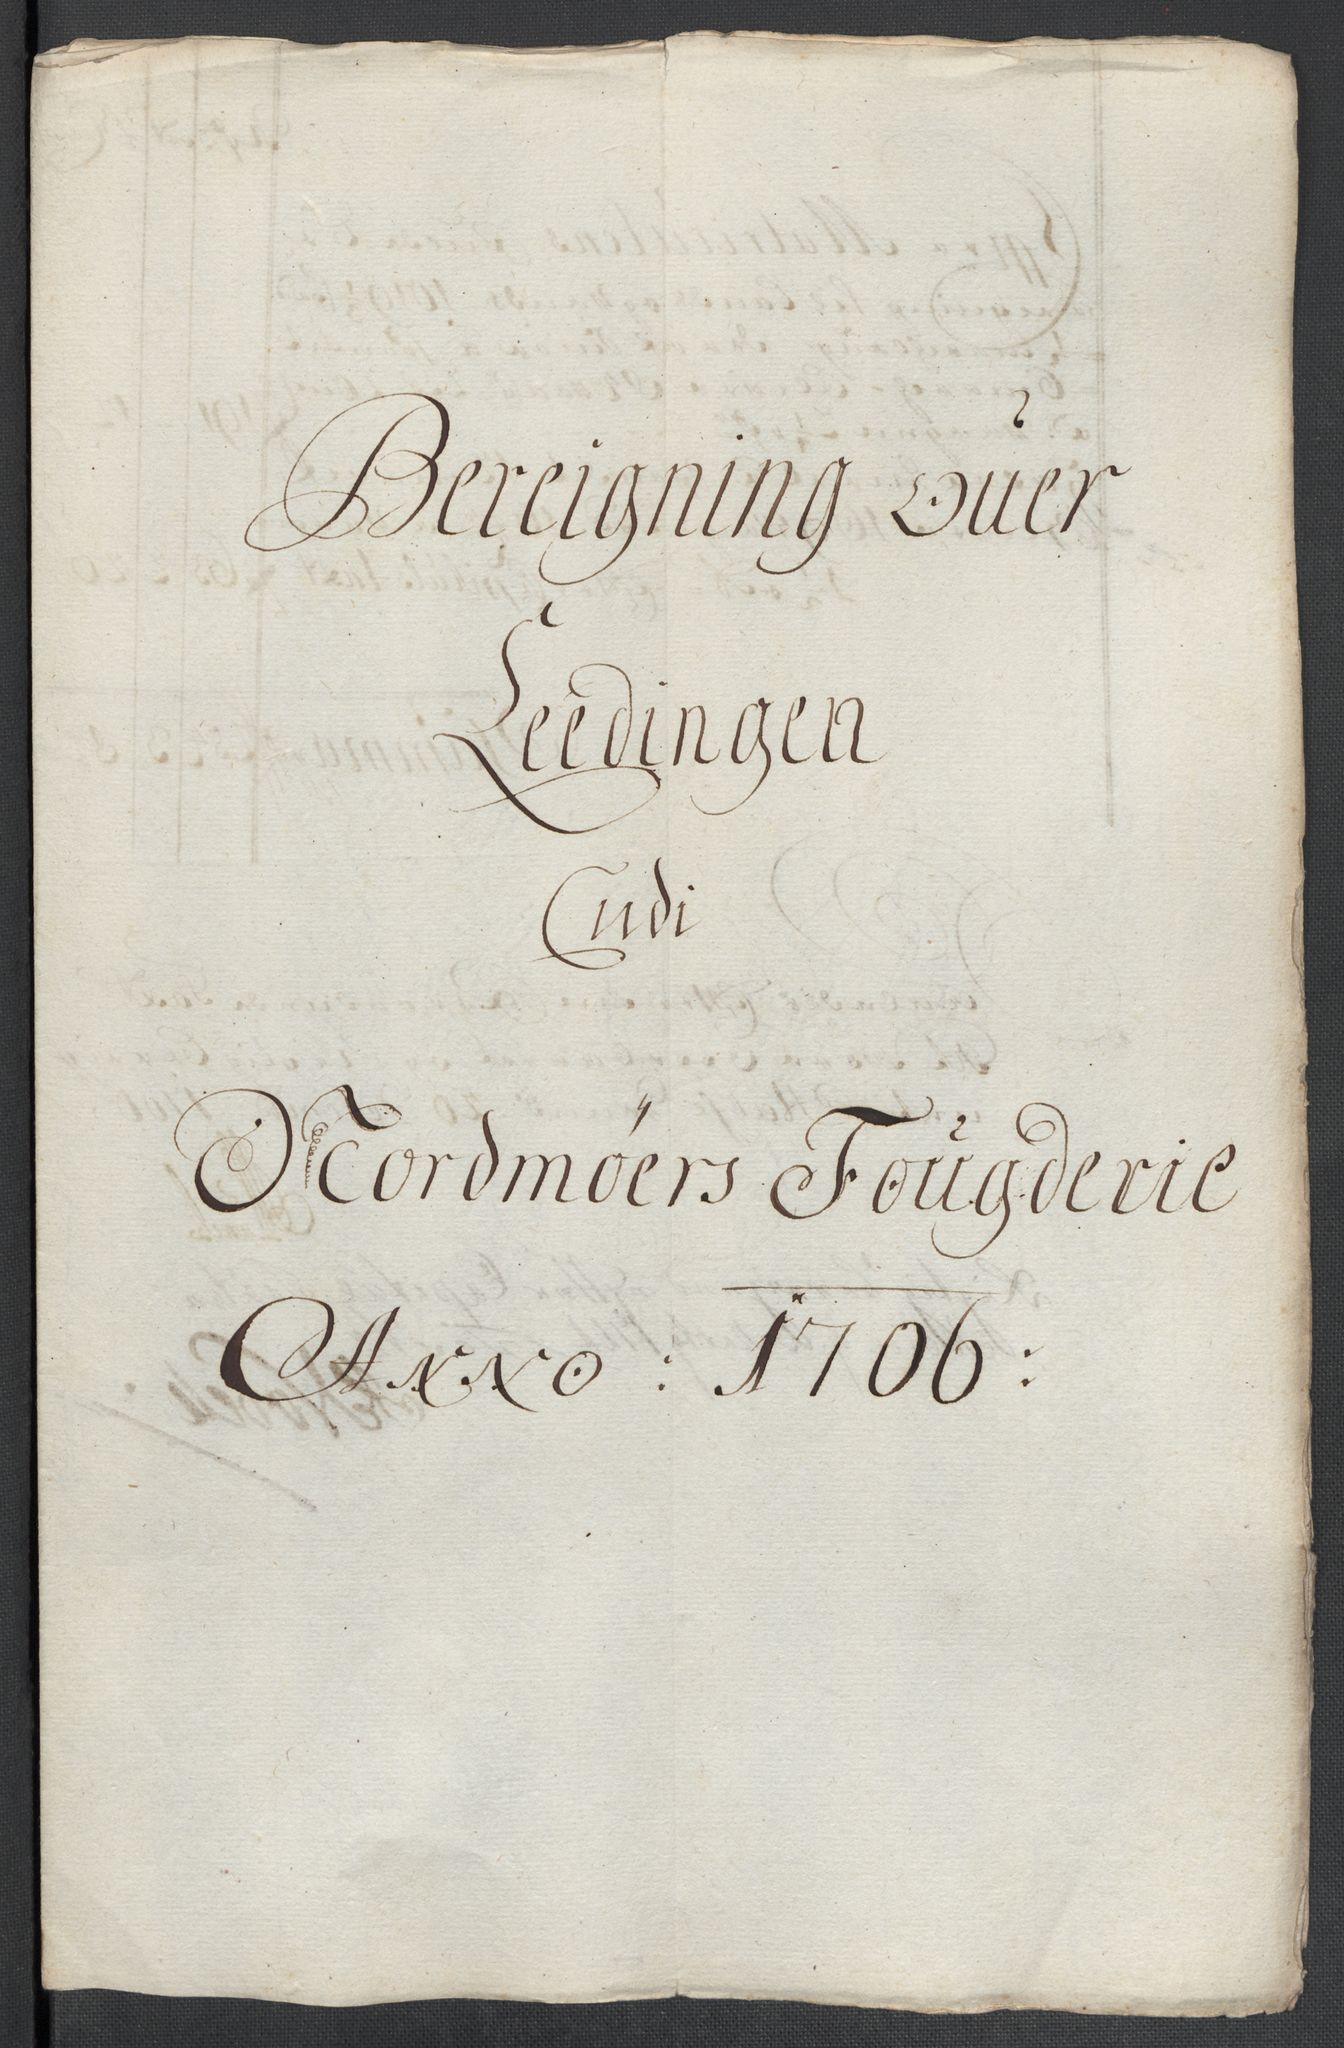 Bereigning Ouer
Leedingen
Udi
Nordmöers Foŭgderie
Anno : 1706 :